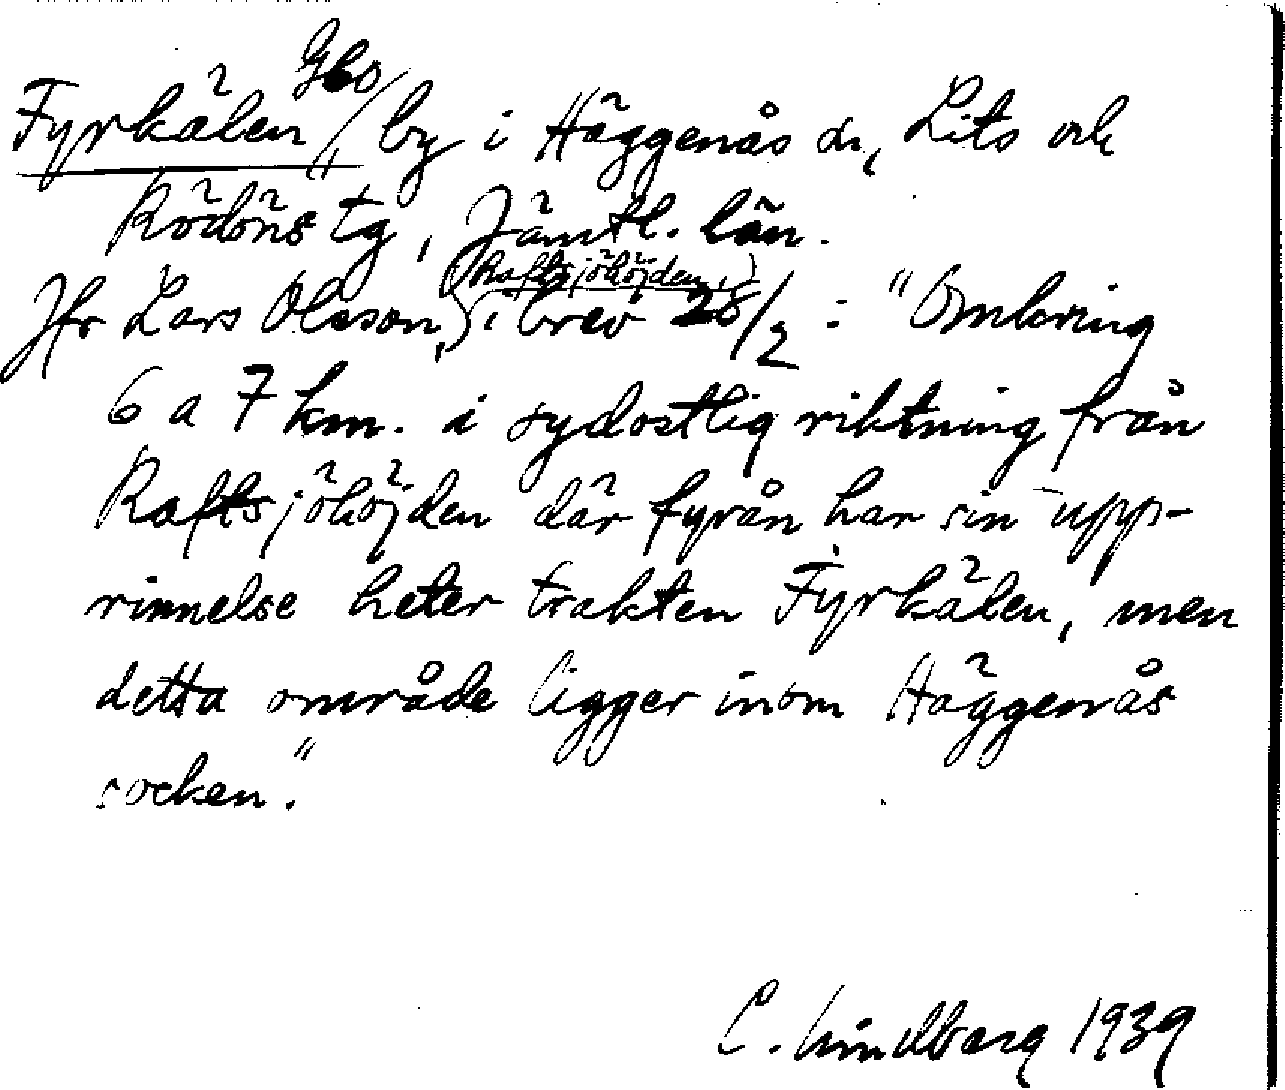 Fyrkälen, by i Häggenås sn, Lits och
Rödöns tg, Jämtl. län.
Jfr Lars Olsson, (Raftsjöhöjden,) i brev 28/2 : "Omkring
6 a 7 km. i sydostlig riktning från
Raftsjöhöjden där fyrån har sin upp-
rinnelse heter trakten Fyrkälen, men
detta område ligger inom Häggenås
socken."
C. Lindberg 1939